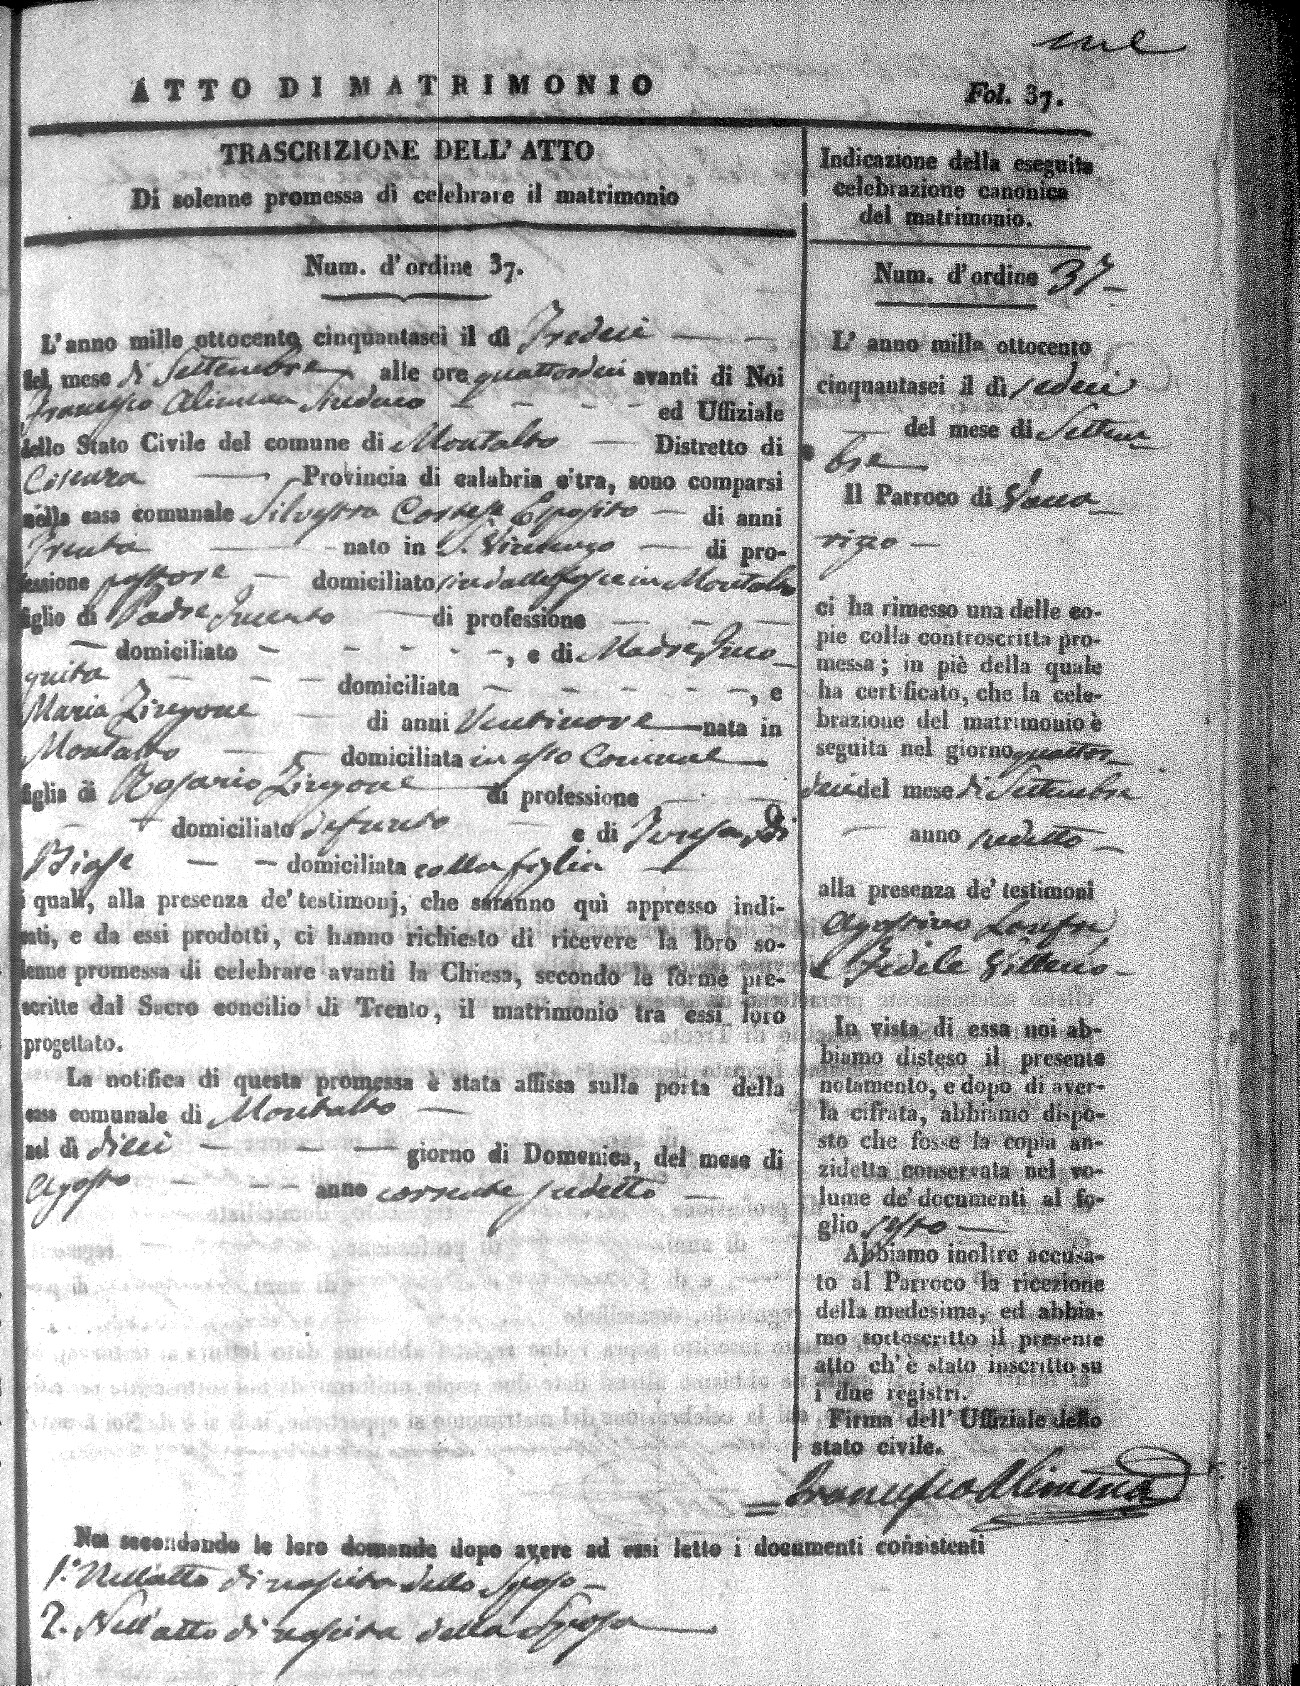 ATTO DI MATRIMONIO
Fol. 37.
TRASCRIZIONE DELL' ATTO
Di solenne promessa di celebrare il matrimonio
Num. d'ordine 37.
L'anno mille ottocento cinquantasei il dì Tredeci
del mese di Settembre alle ore quattordeci avanti di Noi
Francesco Alimena Sindaco ed Uffiziale
dello Stato Civile del comune di Montalto Distretto di
Cosenza Provincia di calabria citra, sono comparsi
nella casa comunale Silvestro Esposito di anni
Trenta nato in S. Vincenzo di pro-
fessione pastore domiciliato in Montalto
figlio di Padre Incerto di professione
domiciliato , e di Madre Inco_
gnita domiciliata , e
Maria Zingone di anni Ventinove nata in
Montalto domiciliata in esso Comune
figlia di Rosario Zingone di professione
domiciliato defunto e di Teresa di
Biase domiciliata colla figlia
i quali, alla presenza de' testimonj, che saranno quì appresso indi-
cati, e da essi prodotti, ci hanno richiesto di ricevere la loro so-
lenne promessa di celebrare avanti la Chiesa, secondo le forme pre-
scritte dal Sacro concilio di Trento, il matrimonio tra essi loro
progettato.
La notifica di questa promessa è stata affissa sulla porta della
casa comunale di Montalto
nel dì dieci giorno di Domenica, del mese di
Agosto anno corrente sudetto
Indicazione della eseguita
celebrazione canonica
del matrimonio.
Num. d'ordine 37
L' anno mille ottocento
cinquantasei il dì sedeci
del mese di Settem_
bre
Il Parroco di Vacca_
rizo
ci ha rimesso una delle co-
pie colla controscritta pro-
messa; in piè della quale
ha certificato, che la cele-
brazione del matrimonio è
seguita nel giorno quattor_
deci del mese di Settembre
anno sudetto
alla presenza de' testimoni
Agostino
e Fedele
In vista di essa noi ab-
biamo disteso il presente
notamento, e dopo di aver-
la cifrata, abbiamo dispo-
sto che fosse la copia an-
zidetta conservata nel vo-
lume de' documenti al fo-
glio sesto
Abbiamo inoltre accusa-
to al Parroco la ricezione
della medesima, ed abbia-
mo sottoscritto il presente
atto ch' è stato inscritto su
i due registri.
Firma dell' Uffiziale dello
stato civile.
Francesco Alimena
Noi secondando le loro domande dopo avere ad essi letto i documenti consistenti
1.° Nell'atto di nascita dello Sposo
2. Nell'atto di nascita della Sposa